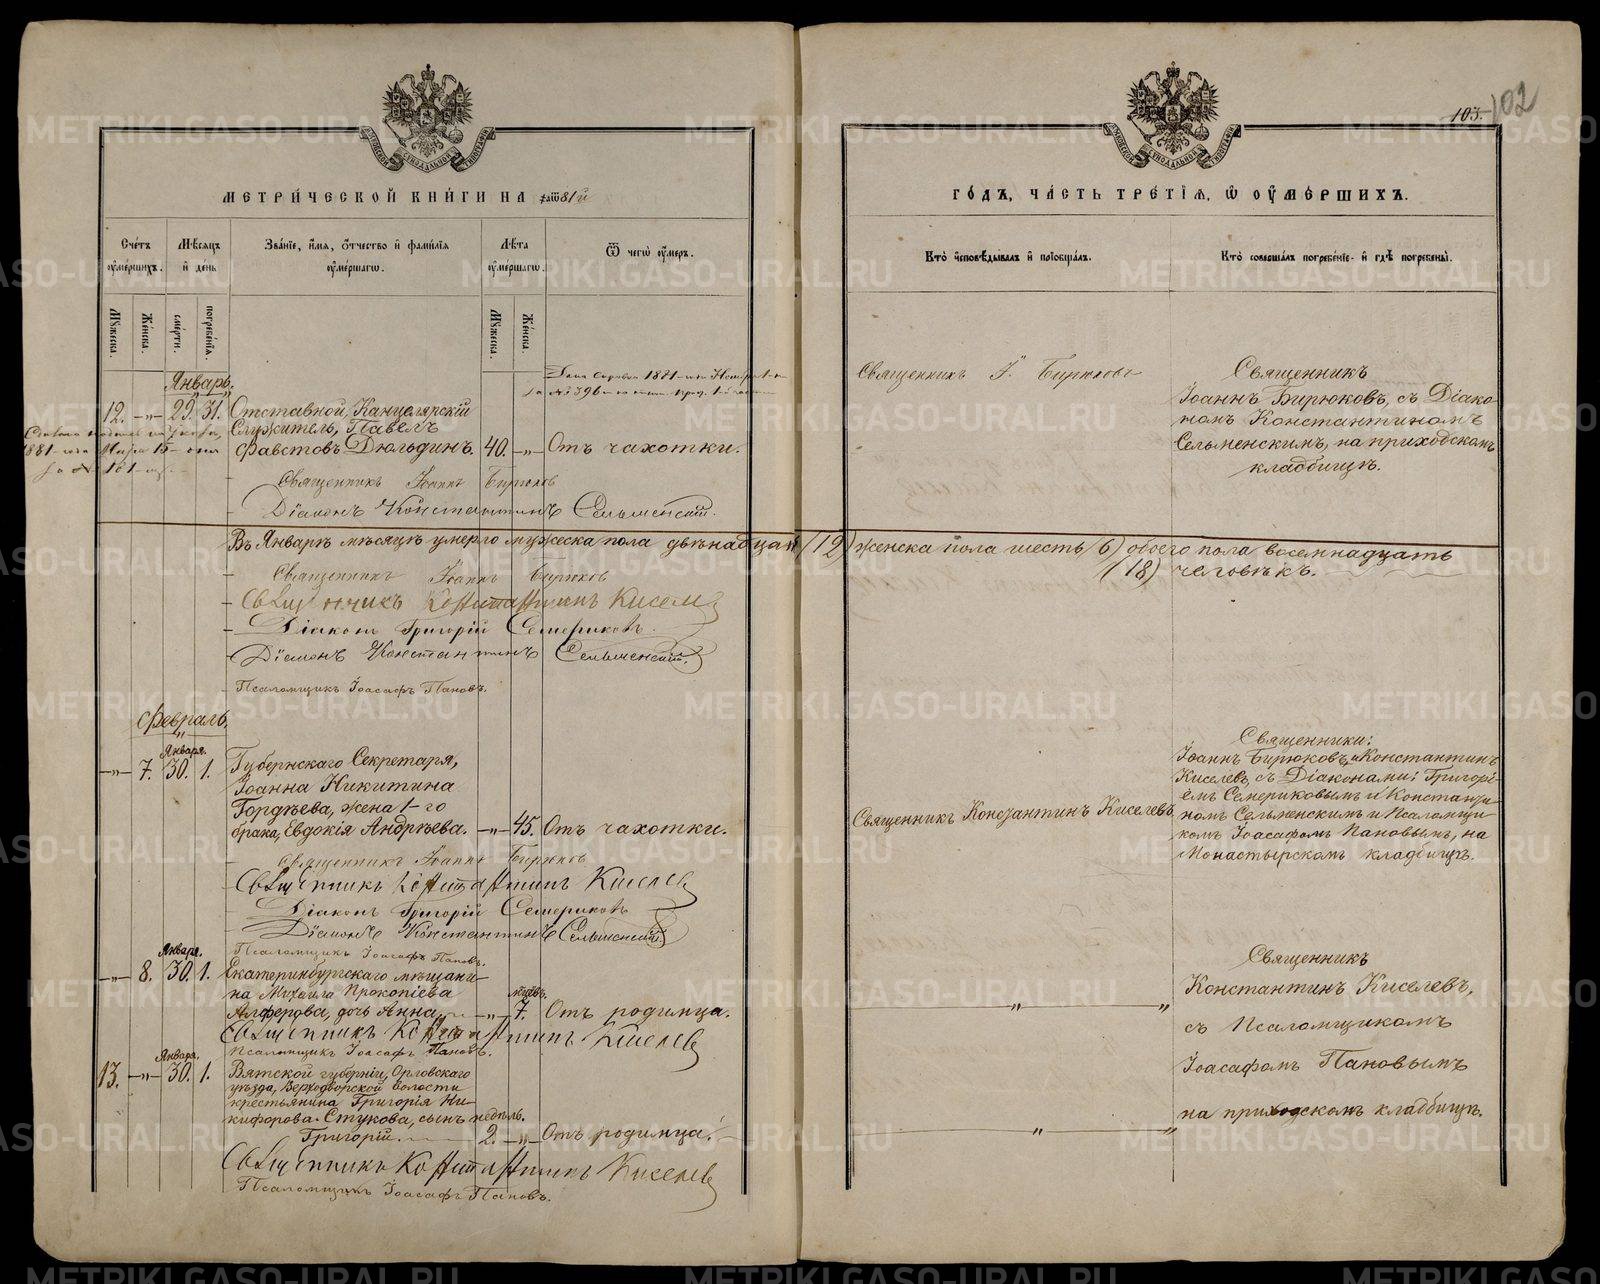 103. 102
МЕТРИ́ЧЕСКОЙ КНИ́ГИ НА 1881й
ГО́ДЪ, ЧА́СТЬ ТРЕ́ТІѦ, Ѡ ОУМЕ́РШИХЪ.
Сче́тъ оуме́ршихъ.
Мѣ́сѧцъ и де́нь
Зва́нїе, и́мѧ, о́тчество и фами́лїѧ оуме́ршагѡ.
Лѣ́та оуме́ршагѡ.
Ѿ чегѡ̀ оу́меръ.
Кто̀ и҆сповѣ́дывалъ и прїобща́лъ.
Кто̀ соверша́лъ погребе́нїе и гдѣ̀ погребены̀.
Мꙋ́жеска.
Же́нска.
сме́рти.
погребе́нїѧ.
Мꙋ́жеска.
Же́нска.
Январь.
12. -„- 29. 31. Отставной Канцелярскій
Служитель, Павелъ
Фавстовъ Дюльдинъ. 40. -„- Отъ чахотки.
Священникъ Іоаннъ Бирюковъ
Діаконъ Константинъ Сельменскій.
Священникъ І. Бирюковъ
Священникъ
Іоаннъ Бирюковъ, съ Діако-
номъ Константиномъ
Сельменскимъ, на приходскомъ
кладбищѣ.
Въ Январѣ мѣсяцѣ умерло мужеска пола двѣнадцать (12) женска пола шесть (6) обоего пола восемнадцать
(18) человѣкъ.
Священникъ Іоаннъ Бирюковъ
Священникъ Константинъ Киселевъ
Діаконъ Григорій Семериковъ.
Діаконъ Константинъ Сельменскій.
Псаломщикъ Іоасафъ Пановъ.
Февраль.
Января.
-„- 7. 30. 1. Губернскаго Секретаря,
Іоанна Никитина
Гордѣева, жена 1-го
брака, Евдокія Андрѣева. -„- 45. Отъ чахотки.
Священникъ Іоаннъ Бирюковъ
Священникъ Константинъ Киселевъ
Діаконъ Григорій Семериковъ
Діаконъ Константинъ Сельменскій
Псаломщикъ Іоасафъ Пановъ.
Священникъ Константинъ Киселевъ.
Священники:
Іоаннъ Бирюковъ, и Константинъ
Киселевъ, съ Діаконами: Григорі-
емъ Семериковымъ и Константи-
номъ Сельменскимъ и Псаломщи-
комъ Іоасафомъ Пановымъ, на
Монастырскомъ кладбищѣ.
Января.
-„- 8. 30. 1. Екатеринбургскаго мѣщани-
на Михаила Прокопіева
Алферова, дочь Анна. -„- 7. мѣсяц. Отъ родимца.
Священникъ Константинъ Киселевъ
Псаломщикъ Іоасафъ Пановъ.
„ „
Священникъ
Константинъ Киселевъ,
съ Псаломщикомъ
Іоасафомъ Пановымъ
на приходскомъ кладбищѣ.
Января.
13. -„- 30. 1. Вятской губерніи, Орловскаго
уѣзда, Верходворской Волости
крестьянина Григорія Ни-
кифорова Стукова, сынъ недѣль.
Григорій. 2. -„- Отъ родимца.
Священникъ Константинъ Киселевъ
Псаломщикъ Іоасафъ Пановъ.
„ „
METRIKI.GASO-URAL.RU